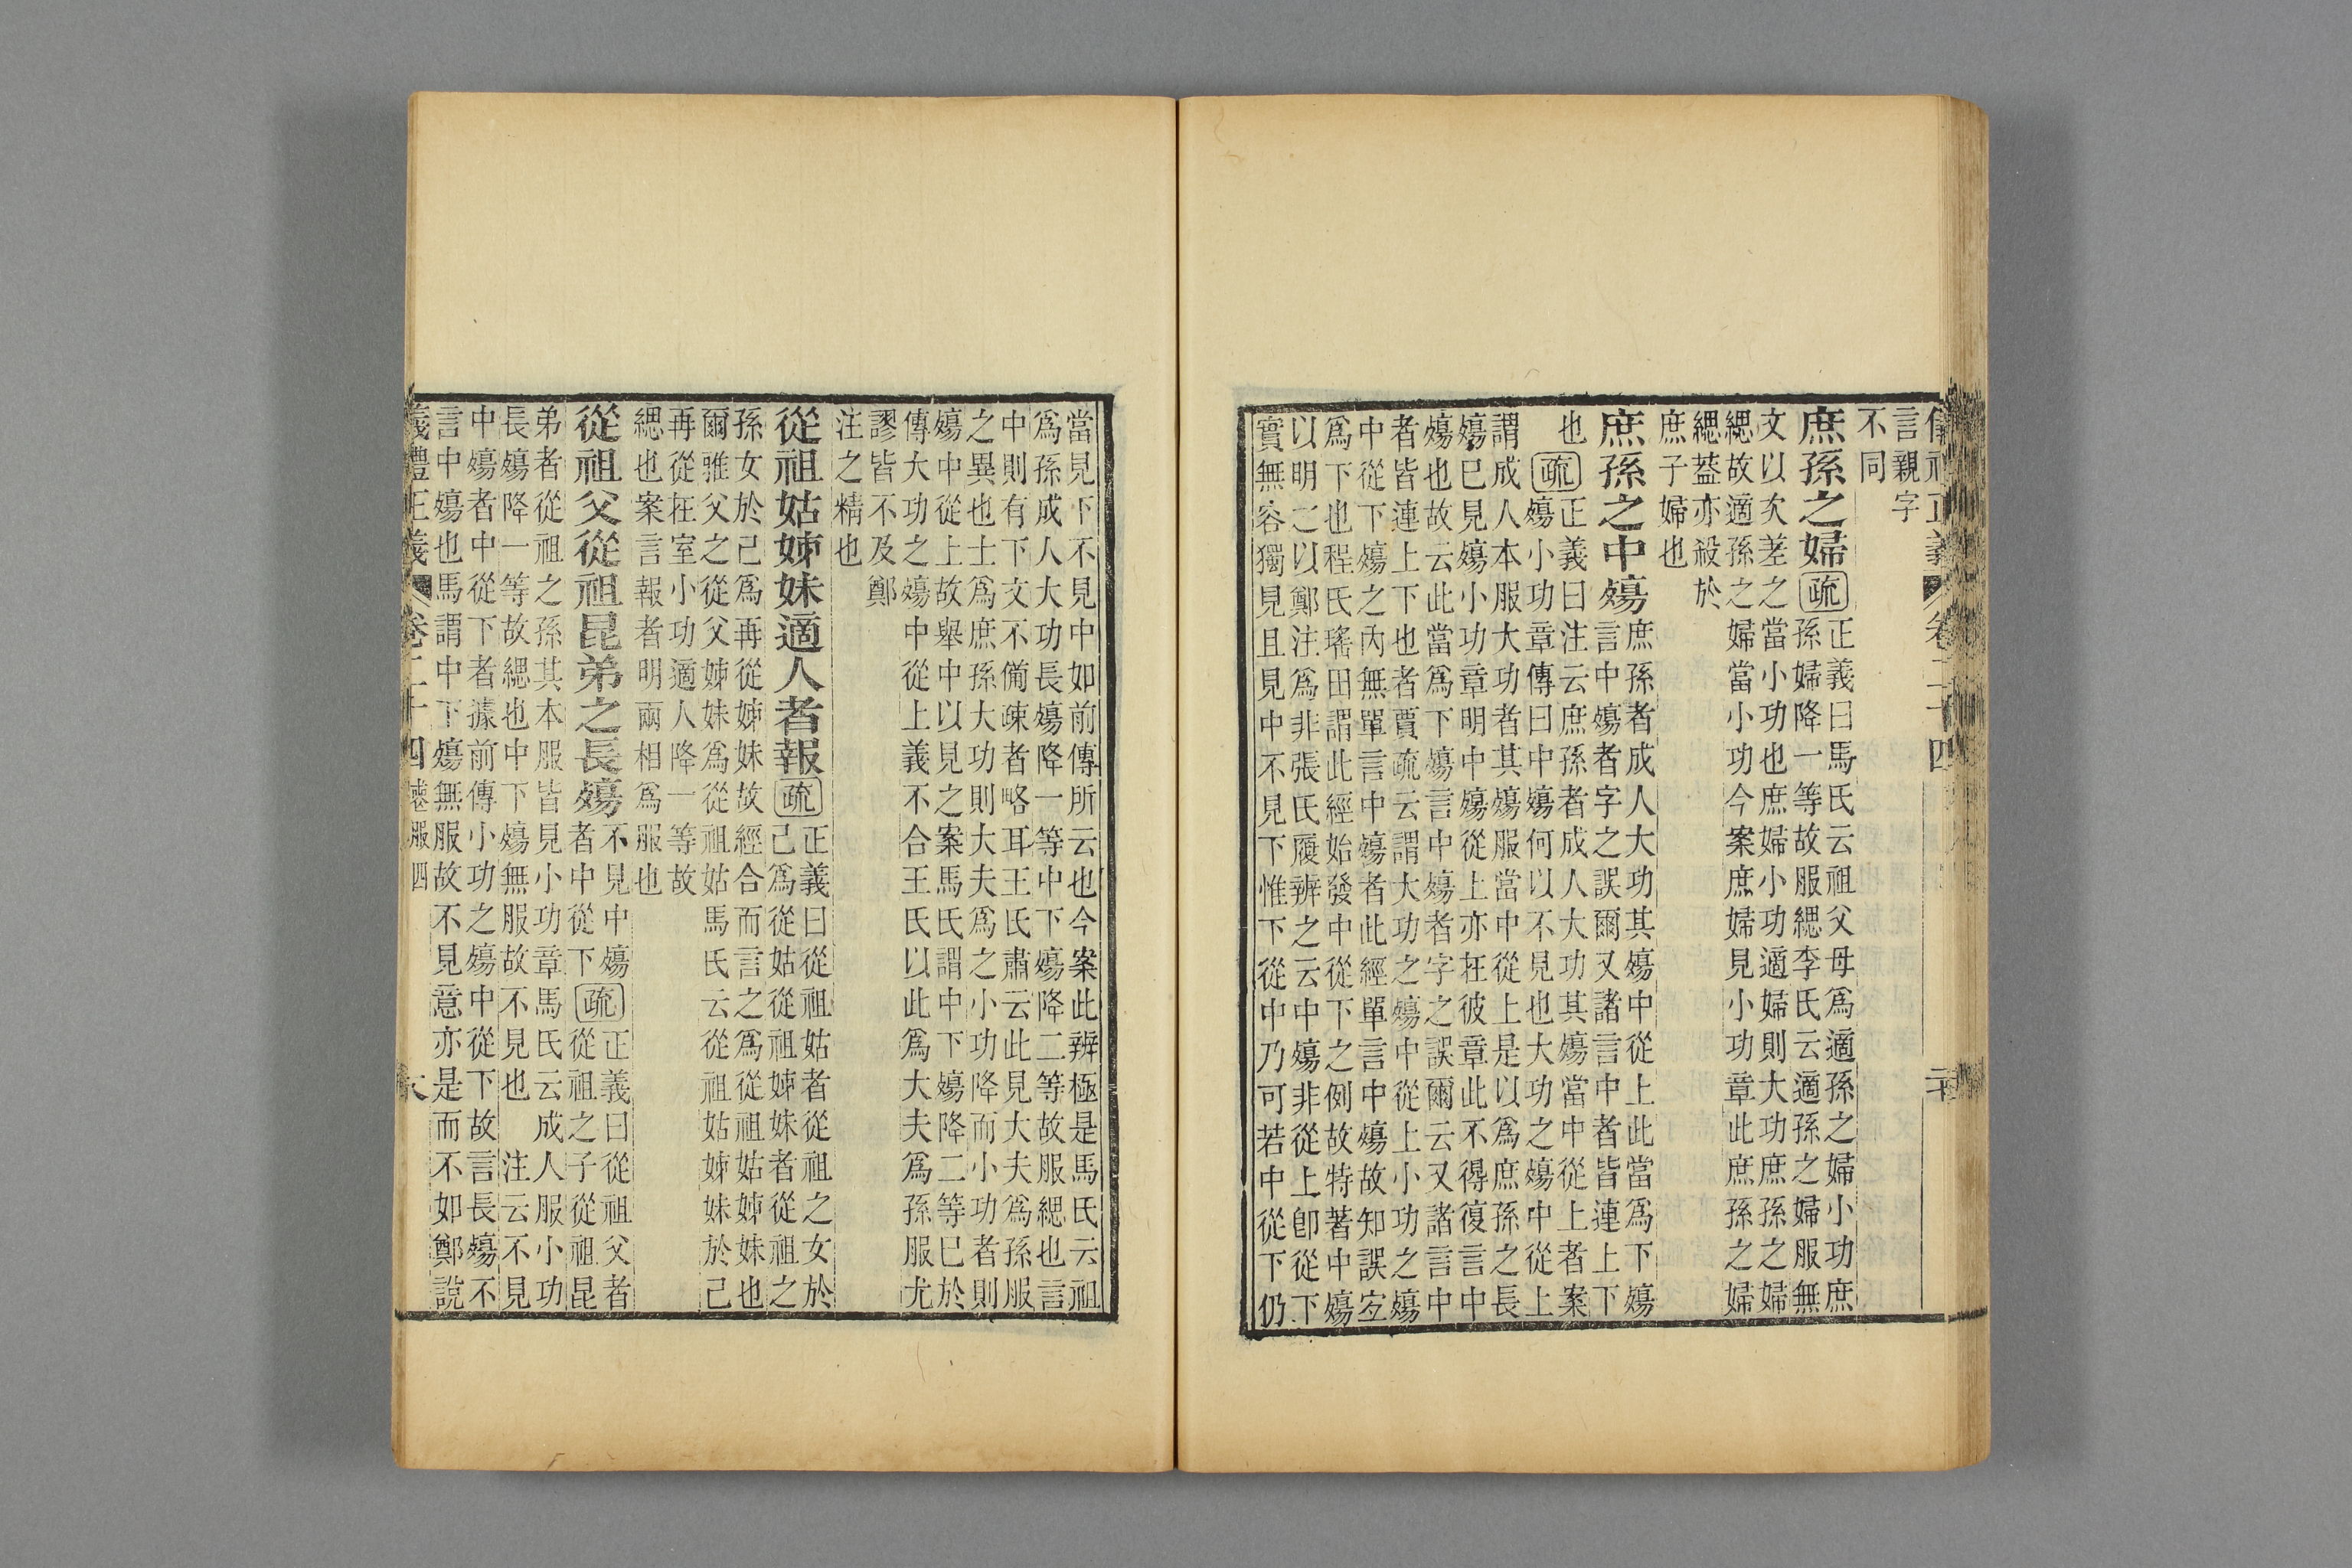 儀禮正義 卷二十四 二十
言親字
不同
庶孫之婦疏
正義曰馬氏云祖父母爲適孫之婦小功庶
孫婦降一等故服緦李氏云適孫之婦服無
文以次差之當小功也庶婦小功適婦則大功庶孫之婦
緦故適孫之婦當小功今案庶婦見小功章此庶孫之婦
緦葢亦殺於
庶子婦也
庶孫之中殤
庶孫者成人大功其殤中從上此當爲下殤
言中殤者字之誤爾又諸言中者皆連上下
也
疏
正義曰注云庶孫者成人大功其殤當中從上者案
殤小功章傳曰中殤何以不見也大功之殤中從上
謂成人本服大功者其殤服當中從上是以爲庶孫之長
殤已見殤小功章明中殤從上亦在彼章此不得復言中
殤也故云此當爲下殤言中殤者字之誤爾云又諸言中
者皆連上下也者賈疏云謂大功之殤中從上小功之殤
中從下殤之內無單言中殤者此經單言中殤故知誤宐
爲下也程氏瑤田謂此經始發中從下之例故特著中殤
以明之以鄭注爲非張氏履辨之云中殤非從上卽從下
實無容獨見且見中不見下惟下從中乃可若中從下仍
當見下不見中如前傳所云也今案此辨極是馬氏云祖
爲孫成人大功長殤降一等中下殤降二等故服緦也言
中則有下文不備疎者略耳王氏肅云此見大夫爲孫服
之異也士爲庶孫大功則大夫爲之小功降而小功者則
殤中從上故舉中以見之案馬氏謂中下殤降二等已於
傳大功之殤中從上義不合王氏以此爲大夫爲孫服尤
謬皆不及鄭
注之精也
從祖姑姊妹適人者報疏
正義曰從祖姑者從祖之女於
己爲從姑從祖姊妹者從祖之
孫女於己爲再從姊妹故經合而言之爲從祖姑姊妹也
爾雅父之從父姊妹爲從祖姑馬氏云從祖姑姊妹於己
再從在室小功適人降一等故
緦也案言報者明兩相爲服也
從祖父從祖昆弟之長殤
不見中殤
者中從下
疏
正義曰從祖父者
從祖之子從祖昆
弟者從祖之孫其本服皆見小功章馬氏云成人服小功
長殤降一等故緦也中下殤無服故不見也 注云不見
中殤者中從下者據前傳小功之殤中從下故言長殤不
言中殤也馬謂中下殤無服故不見意亦是而不如鄭說
義禮正義 卷二十四 喪服四